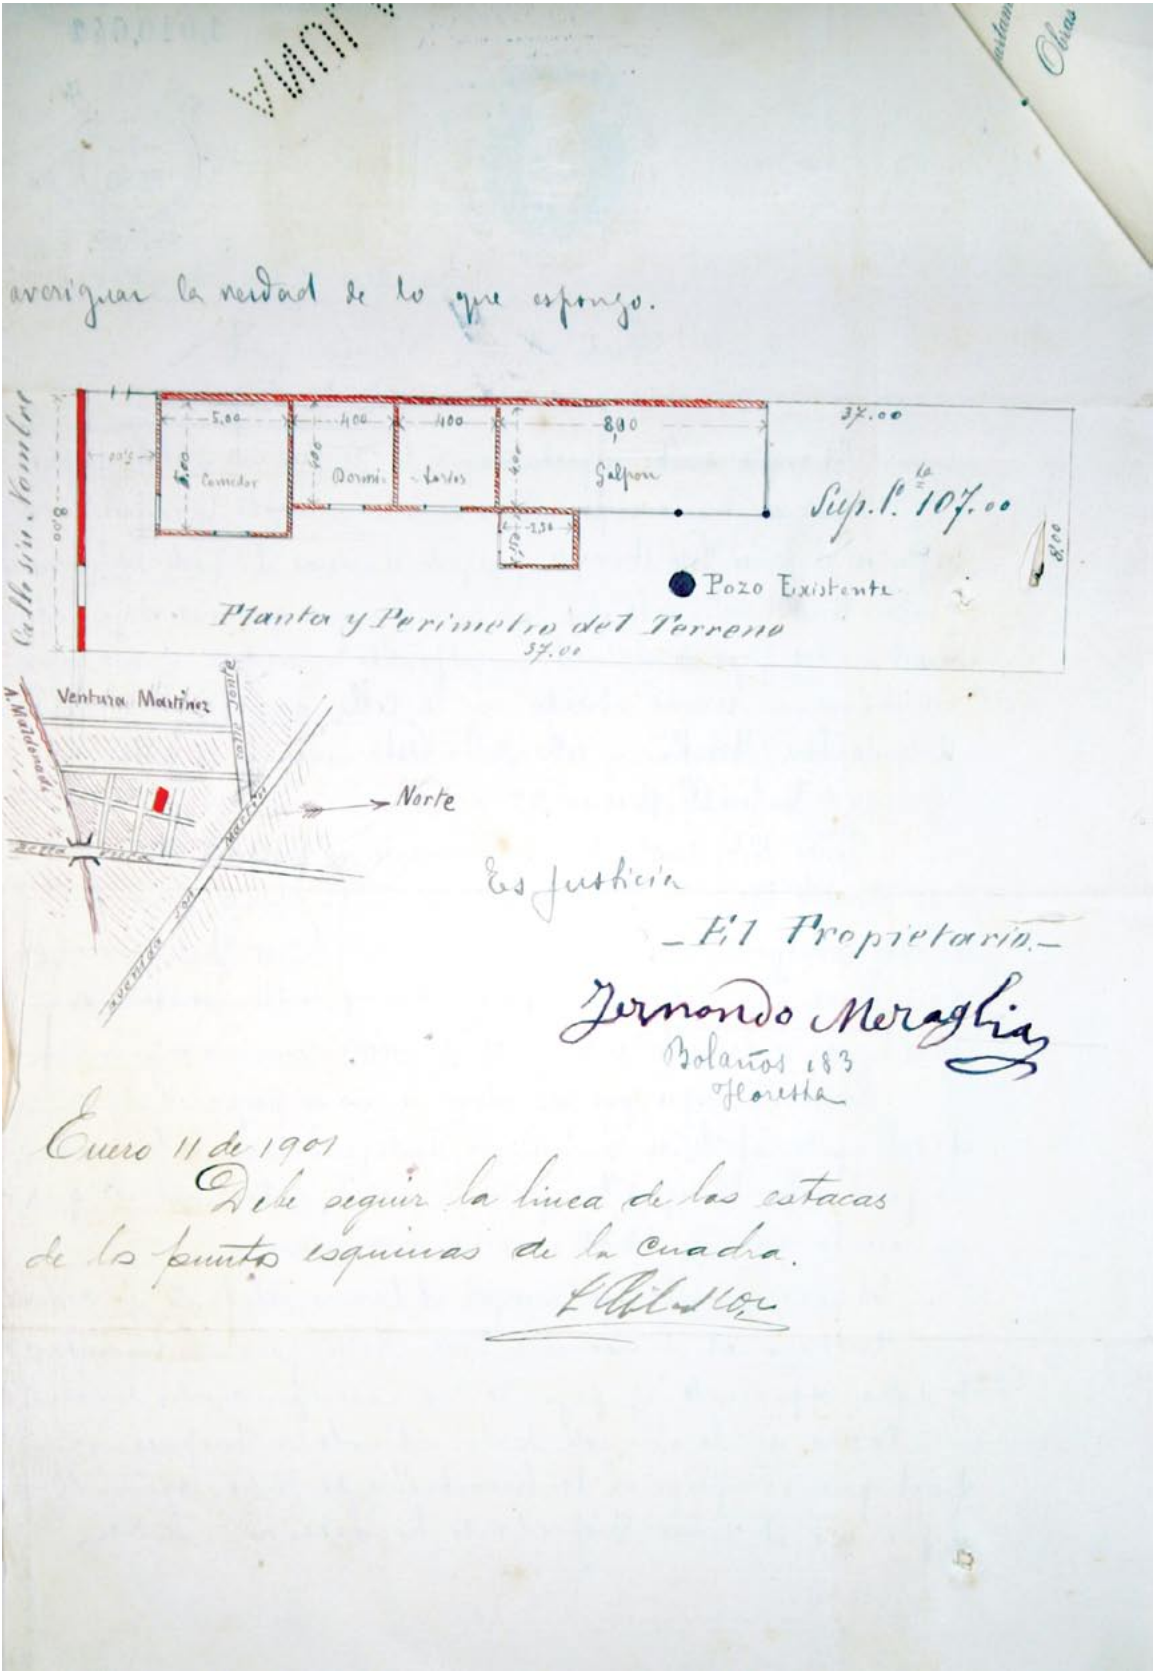 ANUL
Obras
averiguar la verdad de lo que espongo.
Calle sin Nombre
8,00
5,00
400
400
8,00
37.00
5.00
400
4,00
Comedor
Dormi-
-torios
Galpon
Sup. C. ta 107.00
2,50
8.00
Pozo Existente
Planta y Perimetro del Terreno
37.00
A. Maldonado
Ventura Martinez
Calle Jonte
Norte
Avenida San Martin
Es Justicia
- El Propietario -
Fernando Meraglia
Bolaños 183
Floresta
Enero 11 de 1901
Debe seguir la linea de las estacas
de los puntos esquinas de la Cuadra.